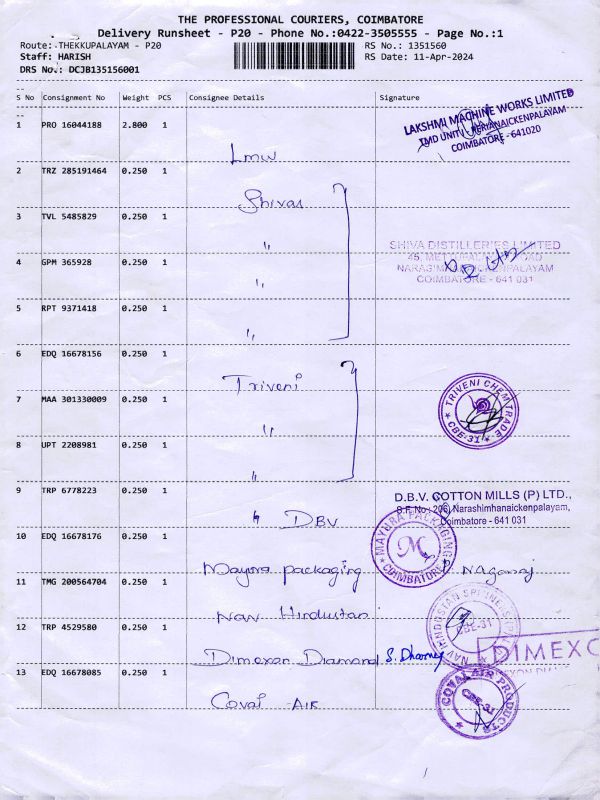 THE PROFESSIONAL COURIERS, COIMBATORE
Delivery Runsheet - P20 - Phone No.:0422-3505555 - Page No.:1
Route: THEKKUPALAYAM - P20
RS No.: 1351560
Staff: HARISH
RS Date: 11-Apr-2024
DRS No.: DCJB135156001
S No Consignment No Weight PCS Consignee Details Signature
1 PRO 16044188 2.800 1
LAKSHMI MACHINE WORKS LIMITED
TMD UNIT PERIANAICKENPALAYAM
COIMBATORE - 641020
Lmw
2 TRZ 285191464 0.250 1
Shivas
3 TVL 5485829 0.250 1
"
SHIVA DISTILLERIES LIMITED
4 GPM 365928 0.250 1
COIMBATORE - 641 031
"
5 RPT 9371418 0.250 1
"
6 EDQ 16678156 0.250 1
Triveni
7 MAA 301330009 0.250 1
TRIVENI CHEM TRADE
CBE-31
"
8 UPT 2208981 0.250 1
"
9 TRP 6778223 0.250 1
D.B.V. COTTON MILLS (P) LTD.,
S.F. No.: 206, Narashimhanaickenpalayam,
Coimbatore - 641 031
" DBV
10 EDQ 16678176 0.250 1
MAYURA PACKAGING
M
COIMBATORE
Mayura packaging Nagaraj
11 TMG 200564704 0.250 1
Nav Hindustan
NAV HINDUSTAN
CBE-31
12 TRP 4529580 0.250 1
DIMEXO
Dimexon Diamond S. Dharney
13 EDQ 16678085 0.250 1
COVAI AIR PRODUCTS
CBE-31
Covai AIR